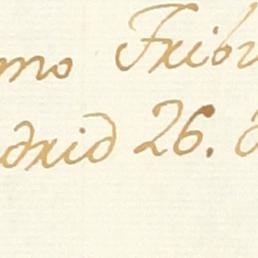 mo Tribu
adrid 26. d